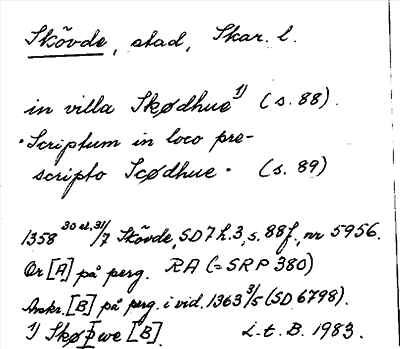 Skövde, stad, Skar. l.
in villa Skødhue¹⁾ (s. 88).
"Scriptum in loco pre-
scripto Scødhue" (s. 89)
1358 30 el. 31/7 Skövde, SD 7 h. 3, s. 88 f., nr 5956.
Or [A] på perg. RA (= SRP 380)
Avskr. [B] på perg. i vid. 1363 3/5 (SD 6798).
1) Skøþwe [B]. L. t. B. 1983.